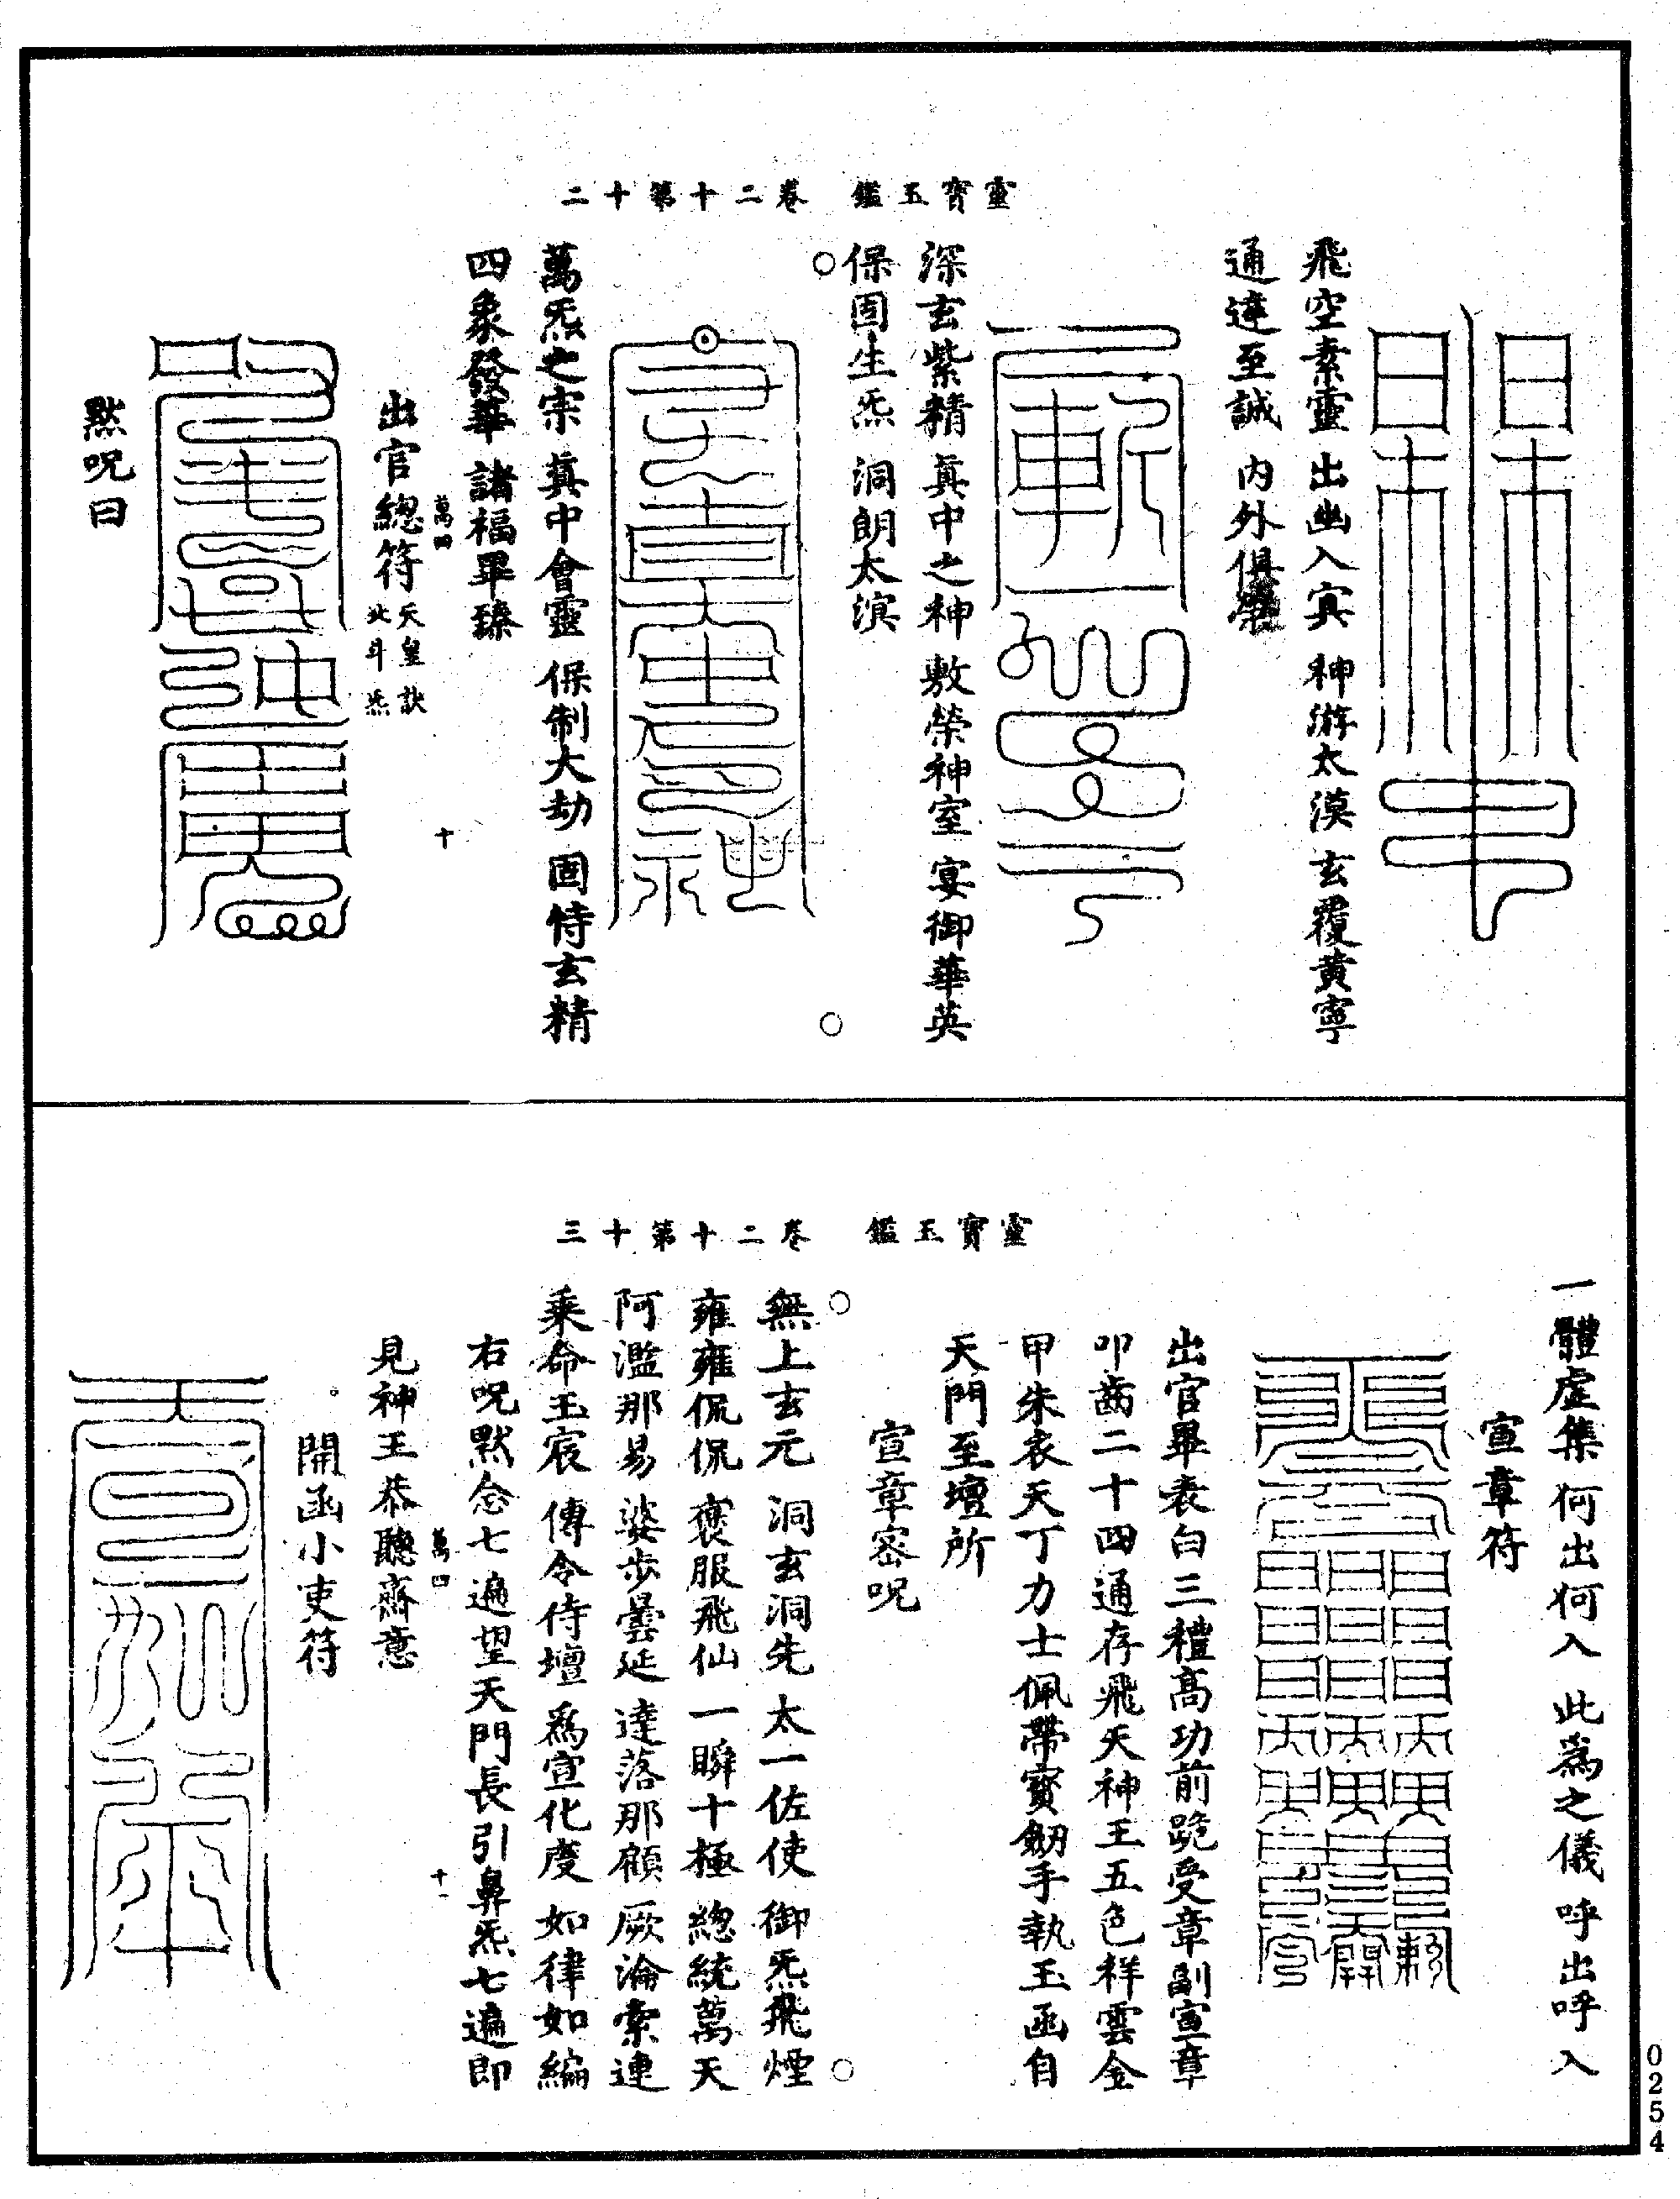 靈寶玉鑑　卷二十第十二
飛空素靈　出幽入㝠　神游太漠　玄覆黃寧
通達至誠　內外俱
深玄紫精　眞中之神　敷榮神室　宴御華英
保固生炁　洞朗太溟
萬炁之宗　眞中會靈　保制大劫　固恃玄精
四象發華　諸福畢臻
萬四　十
出官總符　天皇訣　北斗炁
默呪曰
靈寶玉鑑　卷二十第十三
一體虛集　何出何入　此爲之儀　呼出呼入
宣章符
出官畢表白三禮高功前跪受章副宣章
叩齒二十四通存飛天神王五色祥雲金
甲朱衣天丁力士佩帶寶劒手執玉函自
天門至壇所
宣章密呪
無上玄元　洞玄洞先　太一佐使　御炁飛煙
雍雍侃侃　褒服飛仙　一瞬十極　總統萬天
阿濫那易　婆步曇延　達落那顧　厥淪索連
乘命玉宸　傳令侍壇　爲宣化度　如律如編
右呪默念七遍望天門長引鼻炁七遍即
萬四　十一
見神王恭聽齋意
開函小吏符
0254